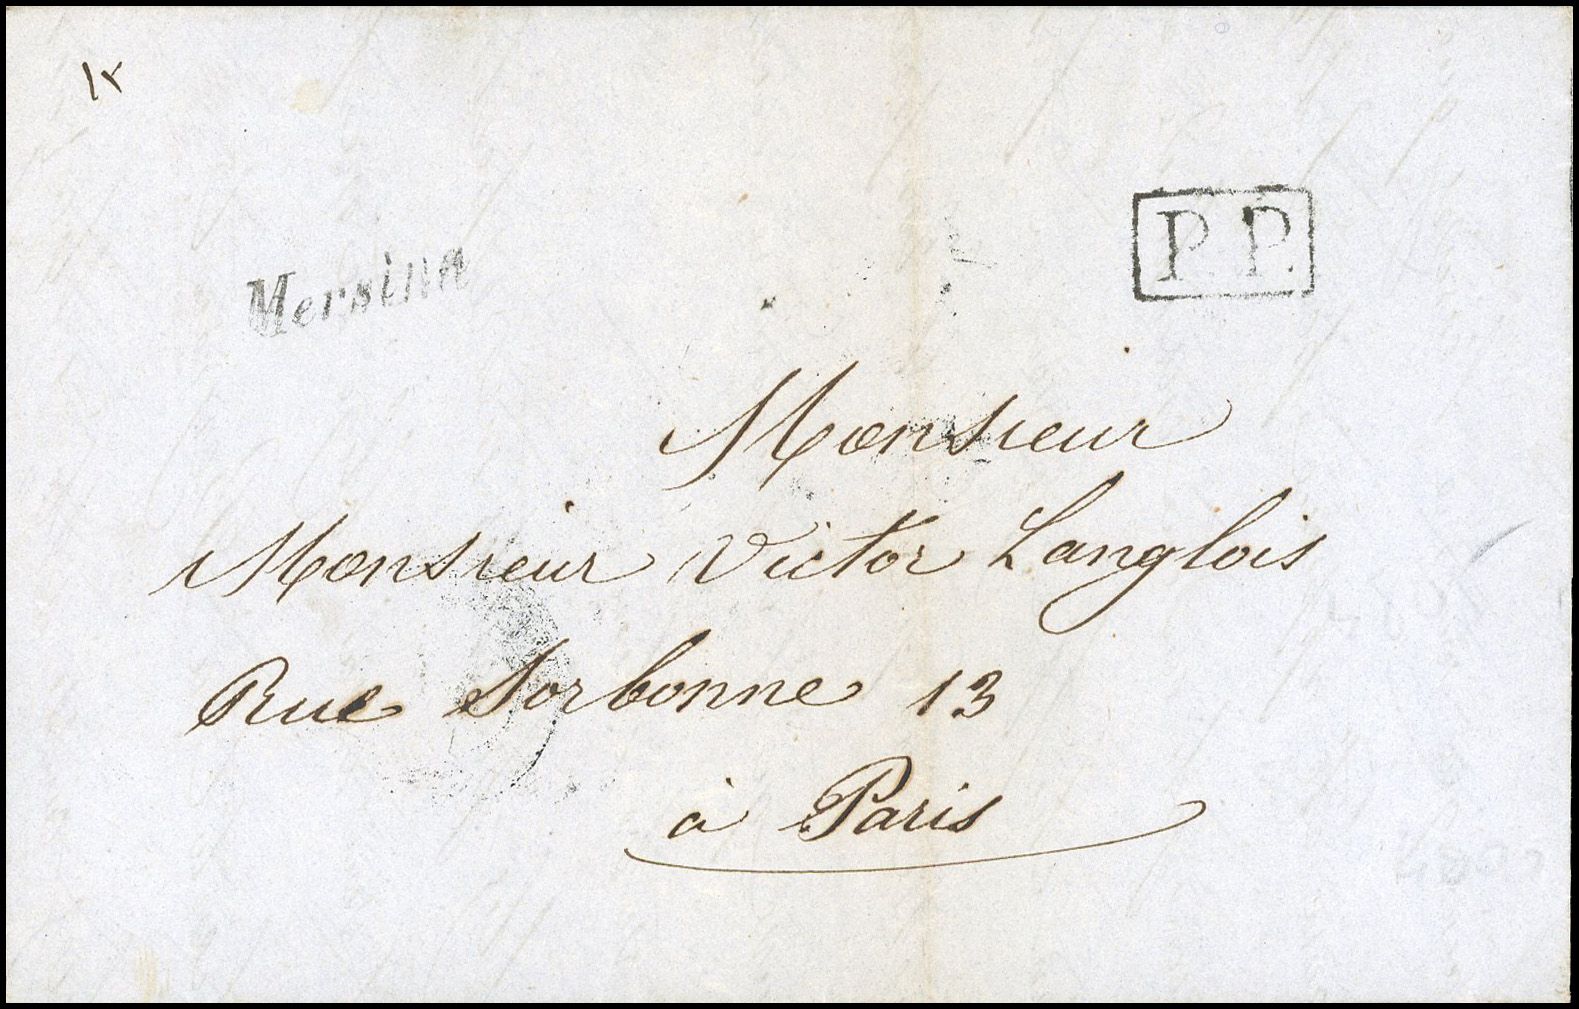 Mersina
P. P.
Monsieur
Monsieur Victor Langlois
Rue Sorbonne 13
à Paris